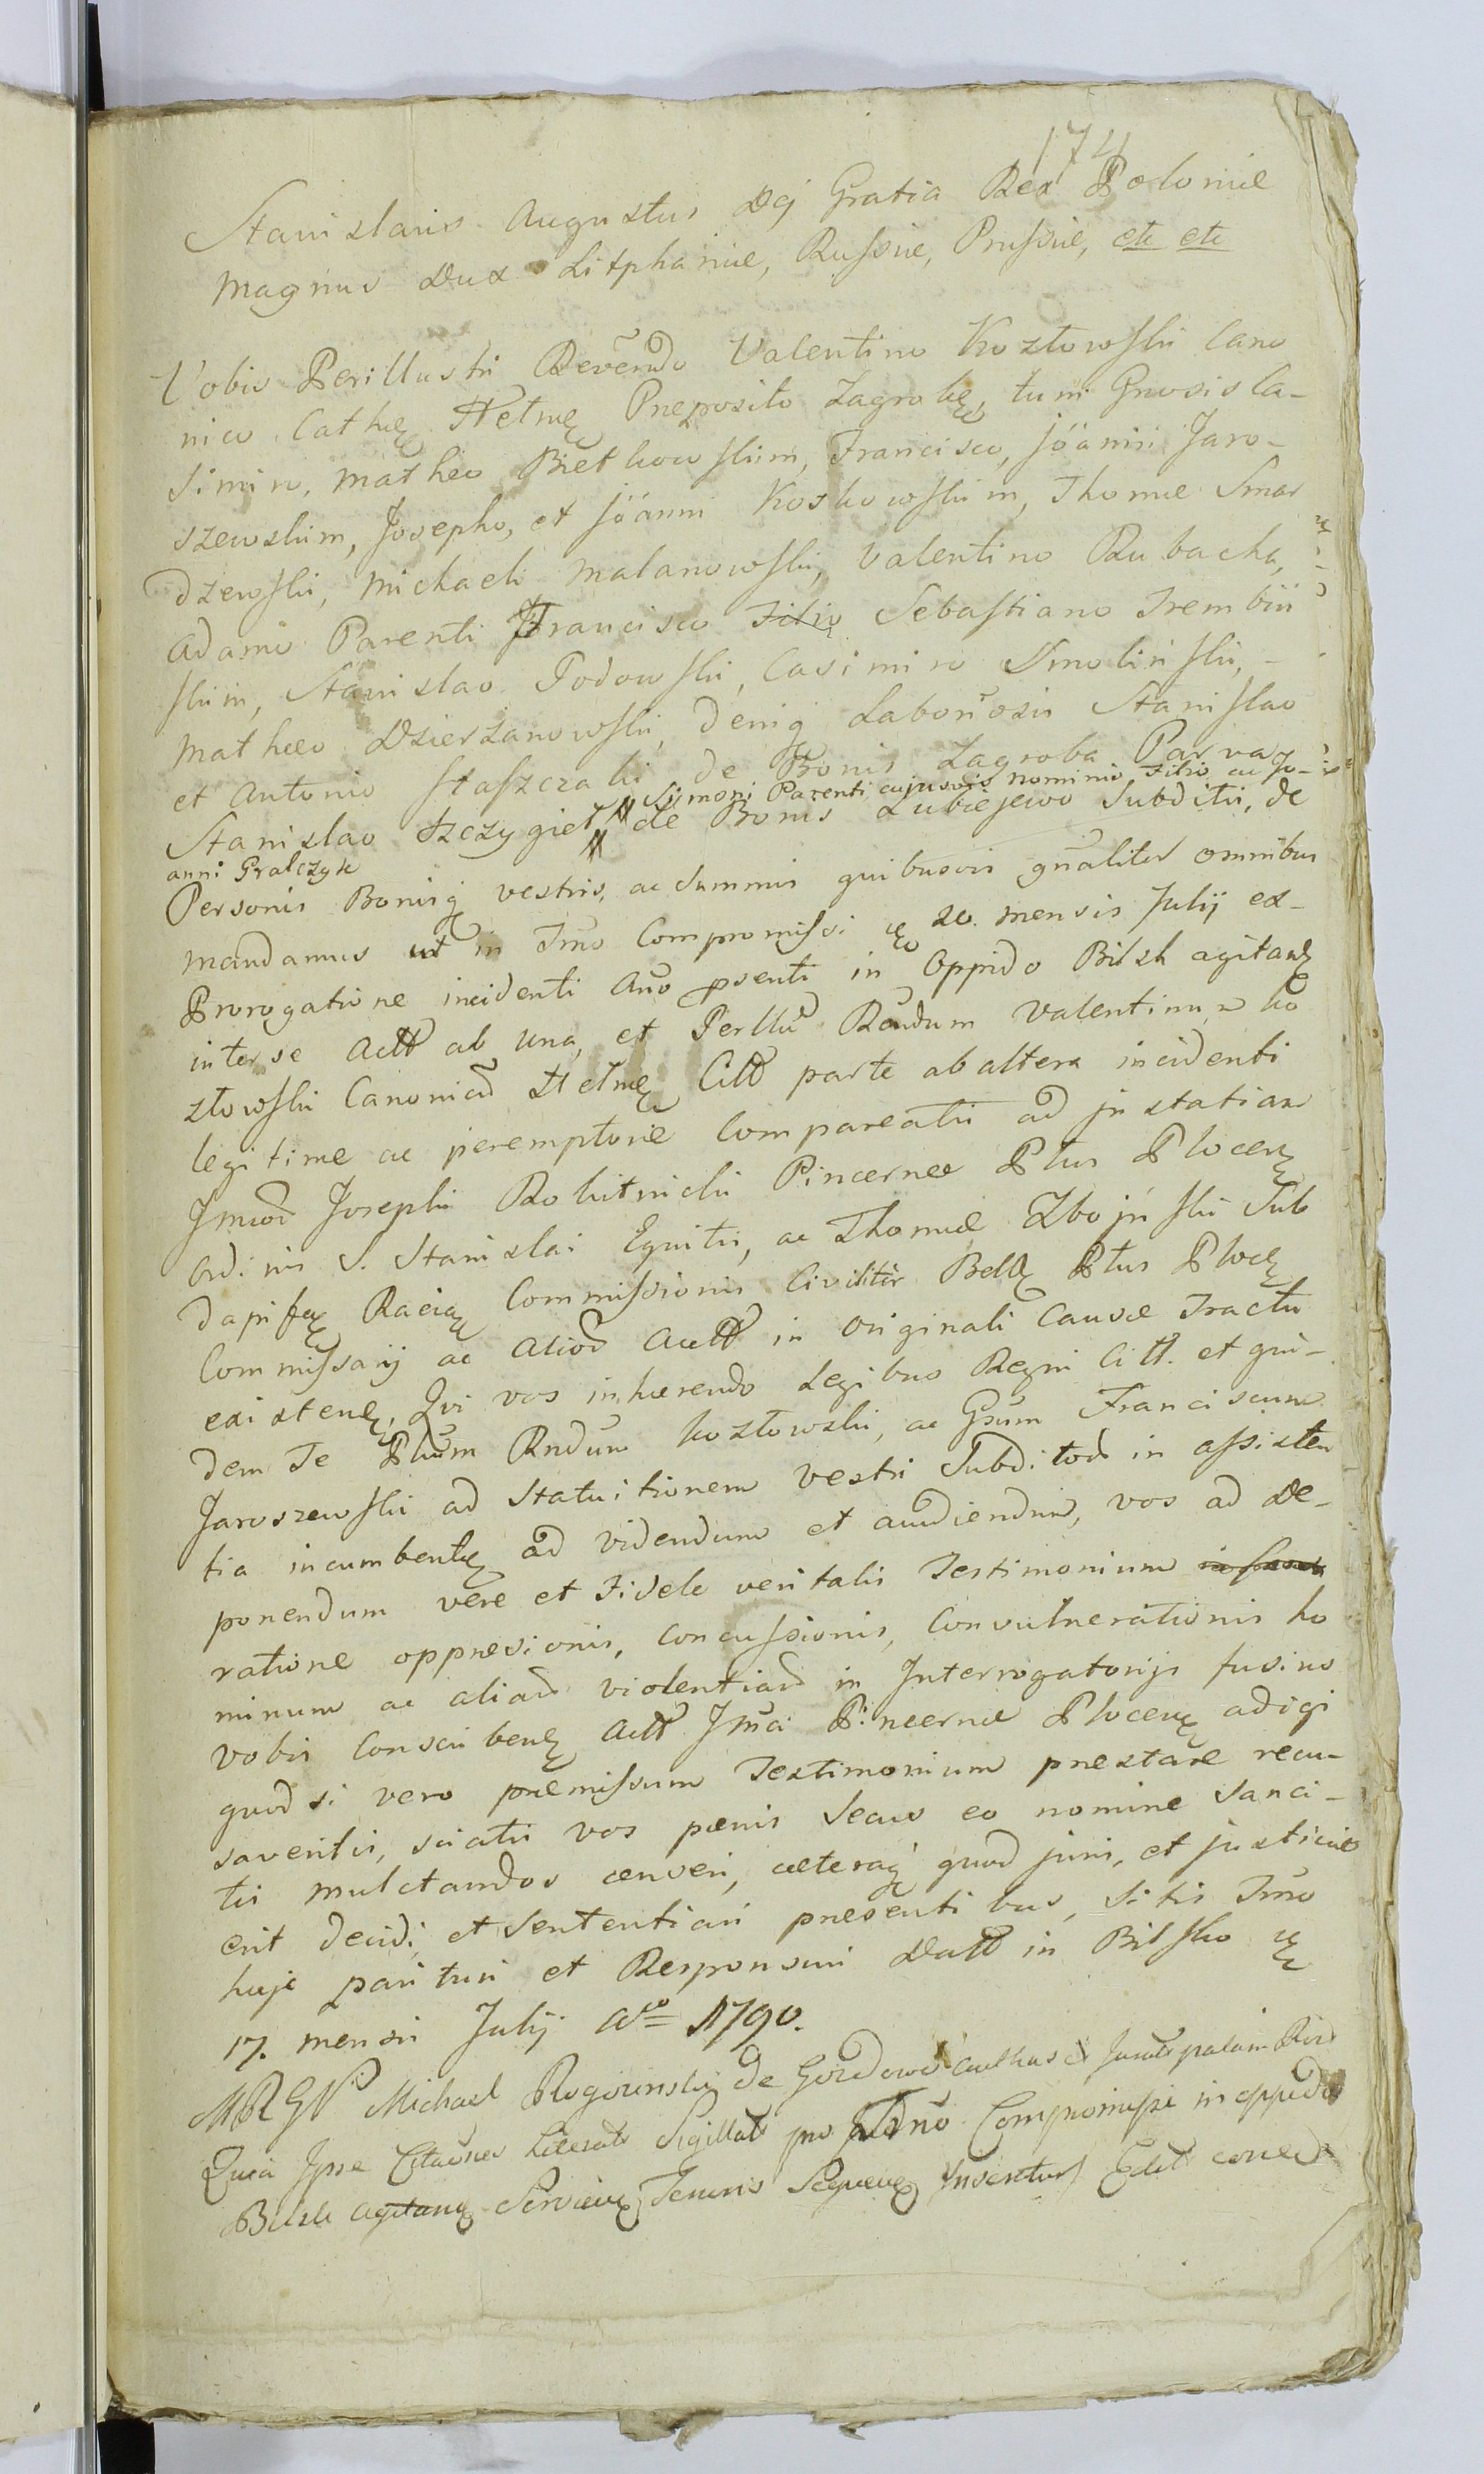 174
Stanislaus Augustus Dej Gratia Rex Poloniæ
Magnus Dux Lithphaniæ, Russiæ, Prussiæ, etc etc
Vobis Perillustri Revendo Valentino Kozłowski Cano
nico Cathę Hełmę Preposito Zagrobę, tum Gnosis Ca-
simiro, Matheo Bietkowskim, Francisco, Joanni Jaro-
szewskim, Josepho, et Joanni Koskowskim, Thomæ Smar
dzewski, Michaeli Malanowski, Valentino Rubacha,
Adamo Parenti Francisco Filio Sebastiano Trembiń
skim, Stanislao Podowski, Casimiro Smoliński, -
Matheo Dzierżanowski, deniq Laboriosis Stanislao
et Antonio Staszczaki de Bonis Zagroba Parva
Simoni Parenti cujusvis nominis Filio ac Jo-
Stanislao Szczygieł de Bonis Lubiejewo Subditis, de
anni Gralczyk
Personis Bonisq vestris, ac Summis quibusvis gnaliter omnibus
mandamus ut in Tmo Compromissi 20. mensis Julij ex-
Prorogatione incidenti Ano psenti in Oppido Bilsk agitanę
inter se Actt ab una, et Perllu Rendum Valentinum Ko
złowski Canonicu Hełmę Citt parte ab altera incidenti
legitime ac peremptorie Compareatis ad instatiam
Jmcor Josephi Rokitnicki Pincernæ Pltus Plocenę
Ordinis S. Stanislai Equitis, ac Thomæ Zboiński Sub
dapifę Raciąę Commissionis Civilitër Bellę Pltus Plocę
Commissarij ac alior Actt in Originali Causæ Tractu
existenę, Qui vos inhærendo Legibus Regni Citt. et qui-
dem Te Pllum Rndum Kozłowski, ac Gsum Franciscum
Jaroszewski ad Statuitionem vestri Subditor in assisten
tia incumbentę ad videndum et audiendum, vos ad De-
ponendum vere et Fidele veritatis Testimonium
ratione oppressionis, concussionis, Convulnerationis ho
minum ac aliar violentiar in Interrogatorijs fusius
vobis Conscribenę Actt Jmci Pincernæ Plocenę adigi
quod si vero præmissum Testimonium prestare recu-
saveritis, sciatis vos pænis Secus eo nomine Sanci-
tis mulctandos censeri, cæteraq quod juris, et justiciæ
erit decidi, et Sententiari presentibus, Sitis Tmo
huje parituri et Responsuri Datt in Bilsko
17. mensis Julij Ao = 1790.
MRGN Michael Rogoziński de Gozdowo
Quia Ipse Citaones Literats Sigillats pro Tmno Compromissi in oppido
Bilsk agitanę Servienę Tenoris Sequenę Inseritur